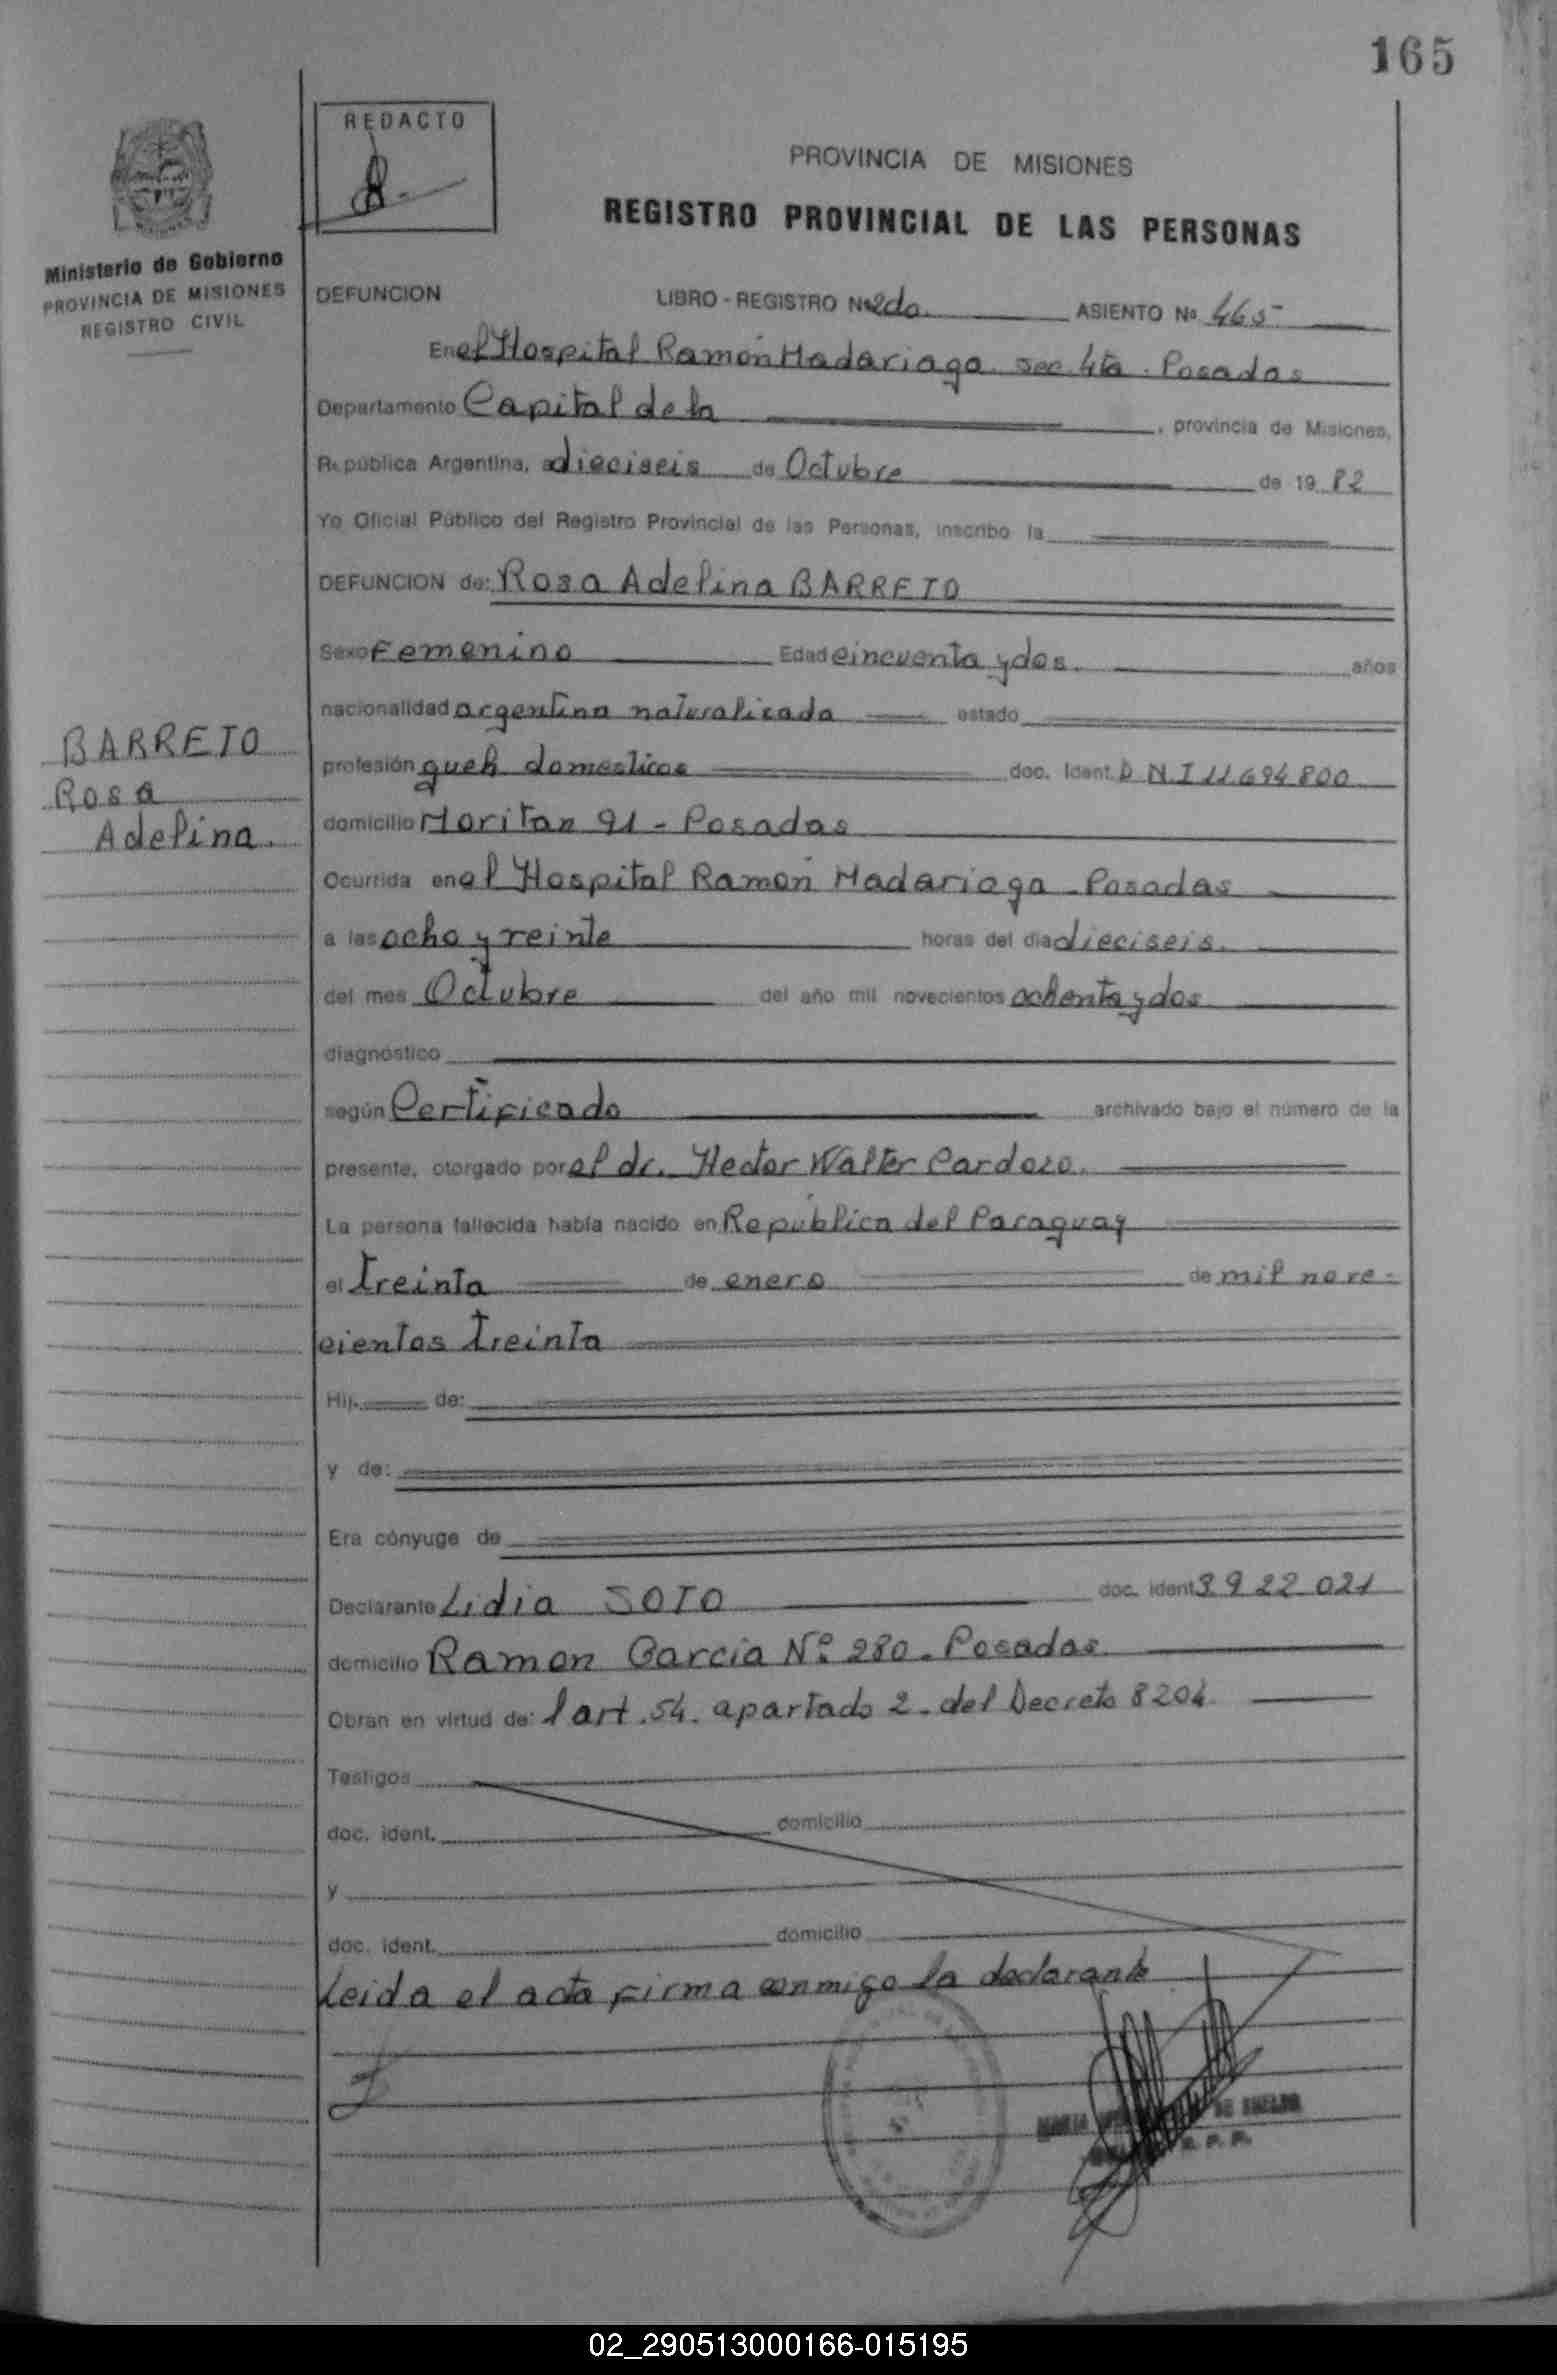 165
REDACTO
PROVINCIA DE MISIONES
REGISTRO PROVINCIAL DE LAS PERSONAS
Ministerio de Gobierno
PROVINCIA DE MISIONES
REGISTRO CIVIL
DEFUNCION LIBRO - REGISTRO Nº 2do. ASIENTO Nº 465
En el Hospital Ramón Madariaga sec 4ta. Posadas
Departamento Capital de la , provincia de Misiones,
República Argentina, a dieciseis de Octubre de 19 82
Yo Oficial Público del Registro Provincial de las Personas, inscribo la
DEFUNCION de: Rosa Adelina BARRETO
Sexo Femenino Edad cincuenta y dos. años
nacionalidad argentina naturalizada estado
BARRETO
Rosa
Adelina.
profesión queh domesticos doc. Ident. D N.I 11.694.800
domicilio Moritan 91 - Posadas
Ocurrida en el Hospital Ramón Madariaga - Posadas
a las ocho y veinte horas del día dieciseis.
del mes Octubre del año mil novecientos ochenta y dos
diagnóstico
según Certificado archivado bajo el número de la
presente, otorgado por el dr. Hector Walter Cardozo.
La persona fallecida había nacido en República del Paraguay
el treinta de enero de mil nove-
cientos treinta
Hij. de:
y de:
Era cónyuge de
Declarante Lidia SOTO doc. ident 3.922.021
domicilio Ramon Garcia Nº 280 - Posadas.
Obran en virtud de: l art. 54. apartado 2. del Decreto 8204.
Testigos
doc. ident. domicilio
y
doc. ident. domicilio
Leida el acta firma conmigo la declarante
02_290513000166-015195